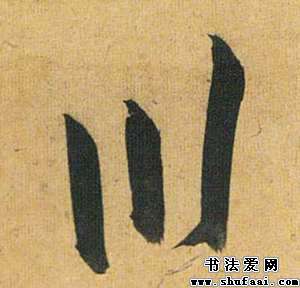 川
书法爱网
www.shufaai.com